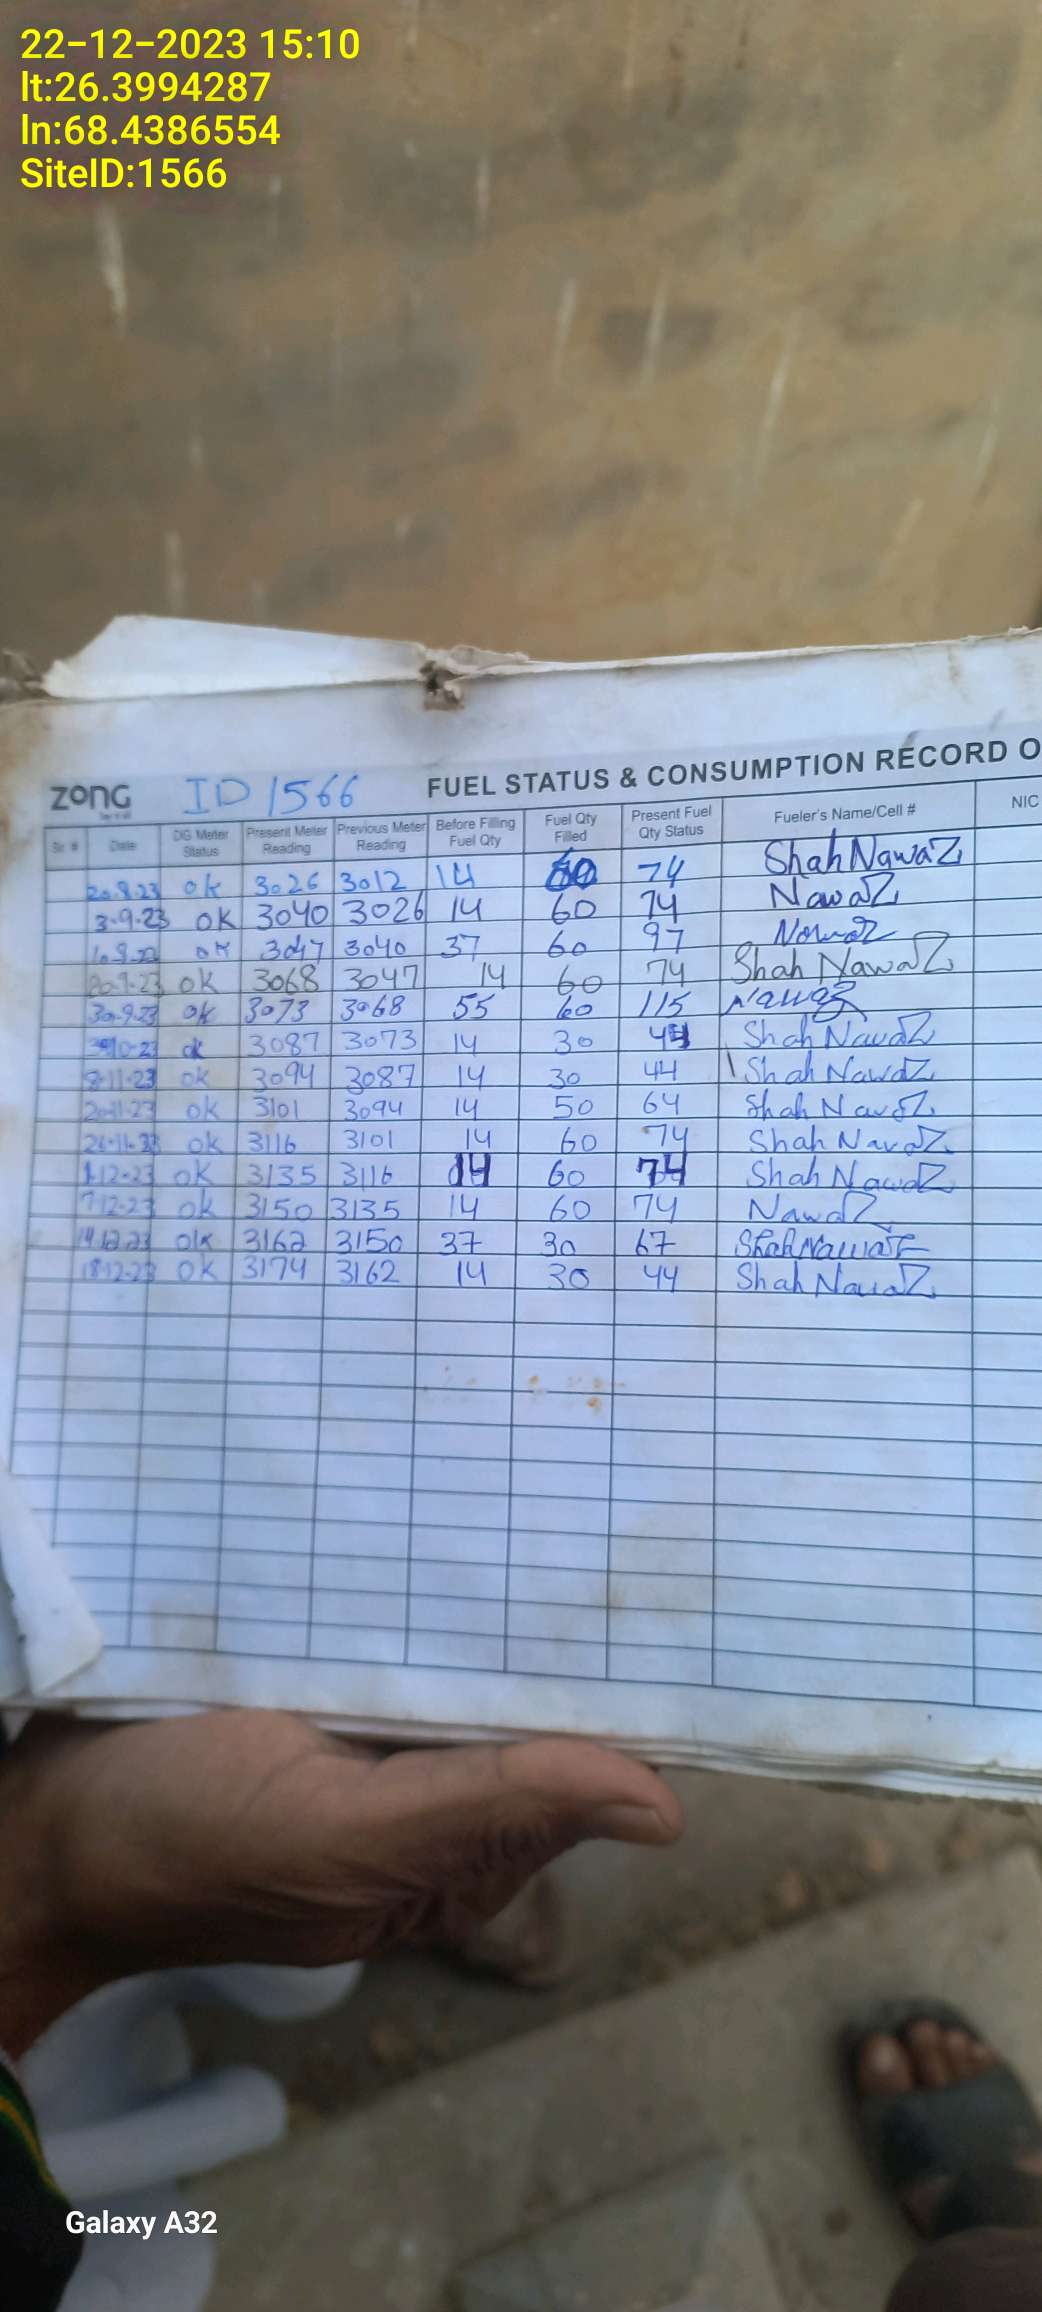 22-12-2023 15:10
lt:26.3994287
ln:68.4386554
SiteID:1566
zong ID 1566 FUEL STATUS & CONSUMPTION RECORD O
Sr # Date DG Meter Status Present Meter Reading Previous Meter Reading Before Filling Fuel Qty Fuel Qty Filled Present Fuel Qty Status Fueler's Name/Cell # NIC
20.8.23 ok 3026 3012 14 60 74 Shah NawaZ
3-9-23 OK 3040 3026 14 60 74 NawaZ
3047 3040 37 60 97 NawaZ
20-9-23 OK 3068 3047 14 60 74 Shah NawaZ
30-9-23 ok 3073 3068 55 60 115 Nawaz
ok 3087 3073 14 30 44 Shah NawaZ
8-11-23 ok 3094 3087 14 30 44 Shah NawaZ
20-11-23 ok 3101 3094 14 50 64 Shah NawaZ
ok 3116 3101 14 60 74 Shah NawaZ
1-12-23 ok 3135 3116 14 60 74 Shah NawaZ
7-12-23 ok 3150 3135 14 60 74 NawaZ
14.12.23 ok 3162 3150 37 30 67 Shah NawaZ
18-12-23 OK 3174 3162 14 30 44 Shah NawaZ
Galaxy A32